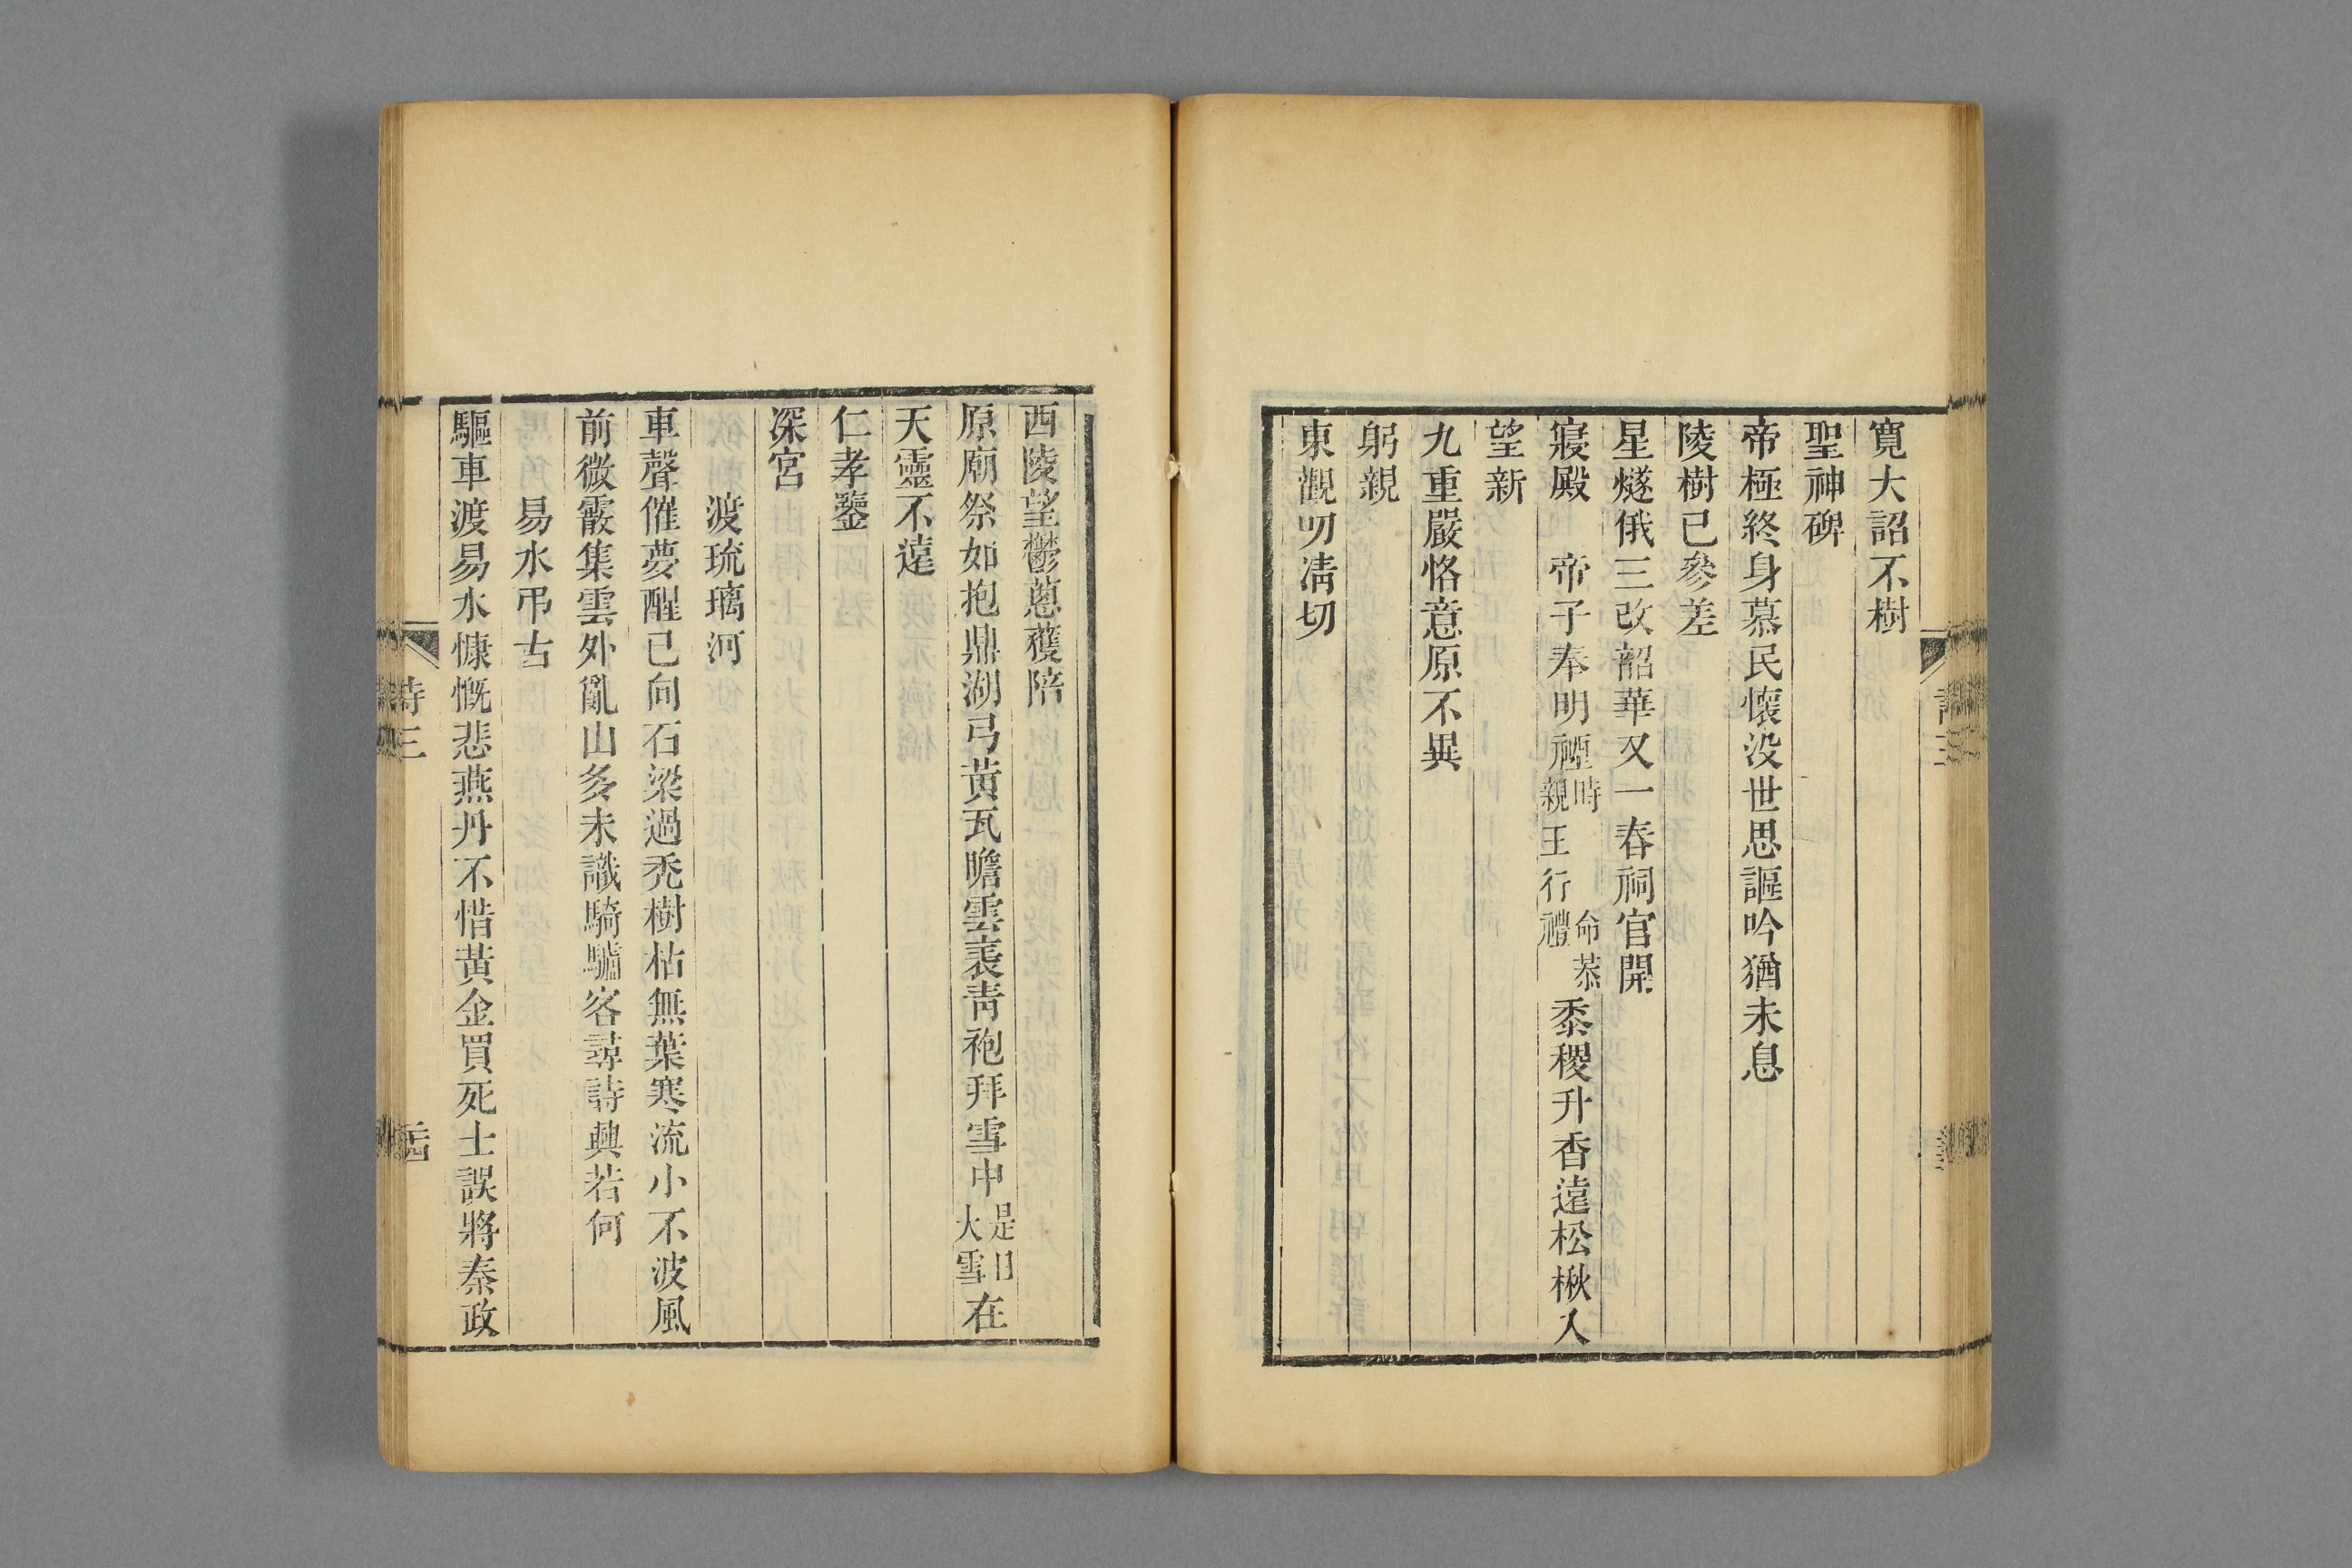 寬大詔不樹
聖神碑
帝極終身慕民懷没世思謳吟猶未息
陵樹已參差
星燧俄三改韶華又一春祠官開
寢殿　帝子奉明禋時　命恭親王行禮黍稷升香遠松楸入
望新
九重嚴恪意原不異
躬親
東觀叨清切
西陵望鬱蔥蒦陪
原廟祭如抱鼎湖弓黃瓦瞻雲表青袍拜雪中是日大雪在
天靈不遠
仁孝鑒
深宮
渡琉璃河
車聲催夢醒已向石梁過禿樹枯無葉寒流小不波風
前微霰集雲外亂山多未識騎驢客尋詩興若何
易水弔古
驅車渡易水慷慨悲燕丹不惜黃金買死士誤將秦政
詩三